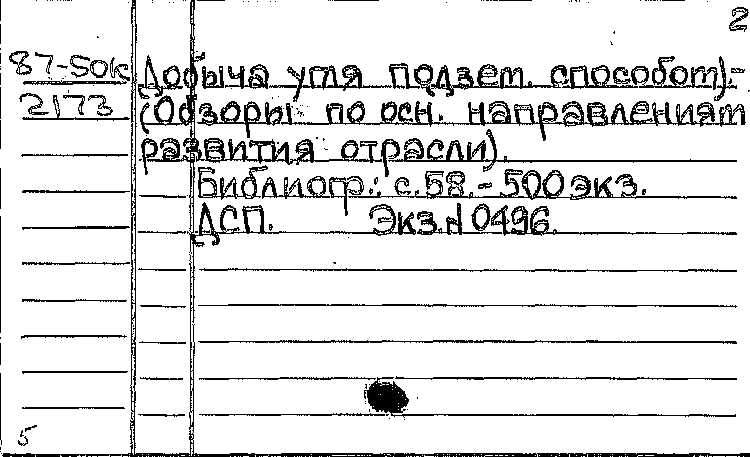 2
87-50к Добыча угля подзем. способом).-
2173 (Обзоры по осн. направлениям
развития отрасли).
Библиогр.: с.58.-500экз.
ДСП. Экз.N0496.
5